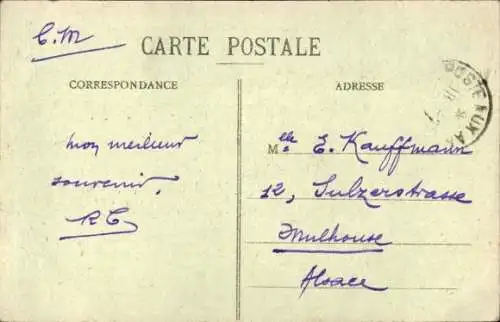 C.M
CARTE POSTALE
CORRESPONDANCE
mon meilleur
souvenir.
RC
ADRESSE
Mlle E. Kauffmann
12, Sulzerstrasse
Mulhouse
Alsace
POSTE AUX A